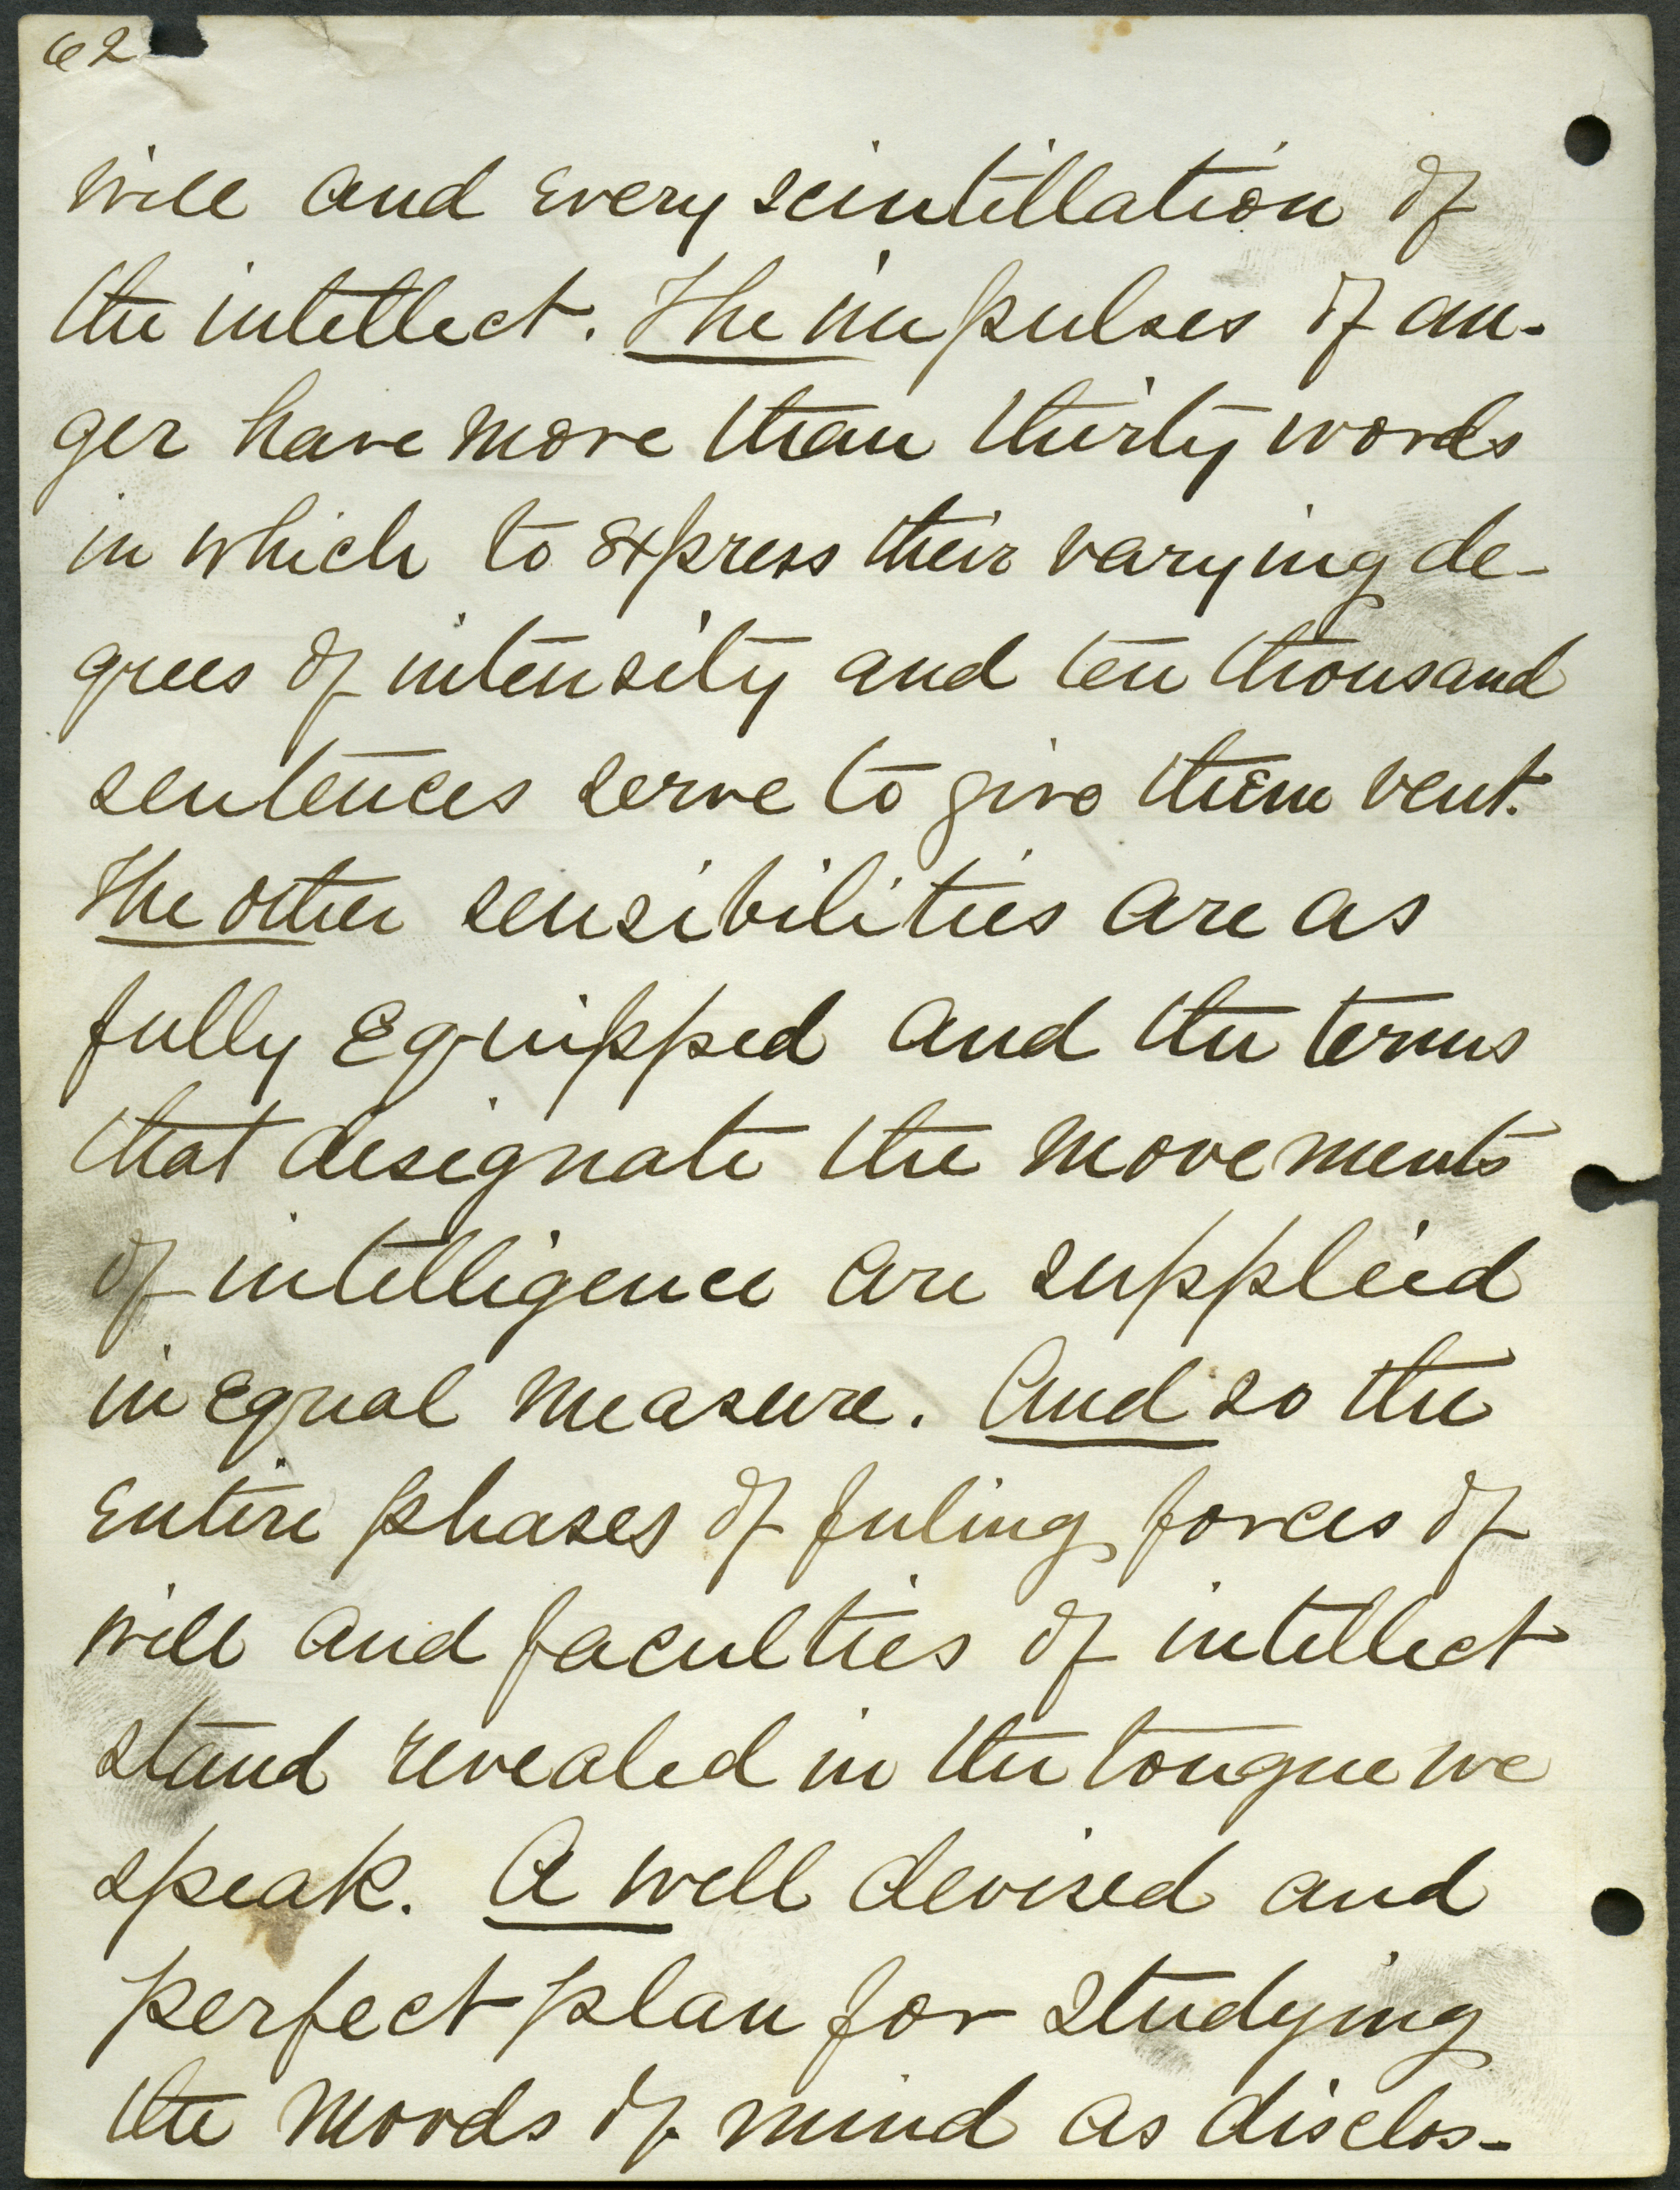 62
will and every scintillation of
the intellect. The impulses of an-
ger have more than thirty words
in which to express their varying de-
grees of intensity and ten thousand
sentences serve to give them vent.
The other sensibilities are as
fully equipped and the terms
that designate the movements
of intelligence are supplied
in equal measure. And so the
entire phases of feeling forces of
will and faculties of intellect
stand revealed in the tongue we
speak. A well devised and
perfect plan for studying
the moods of mind as disclos-